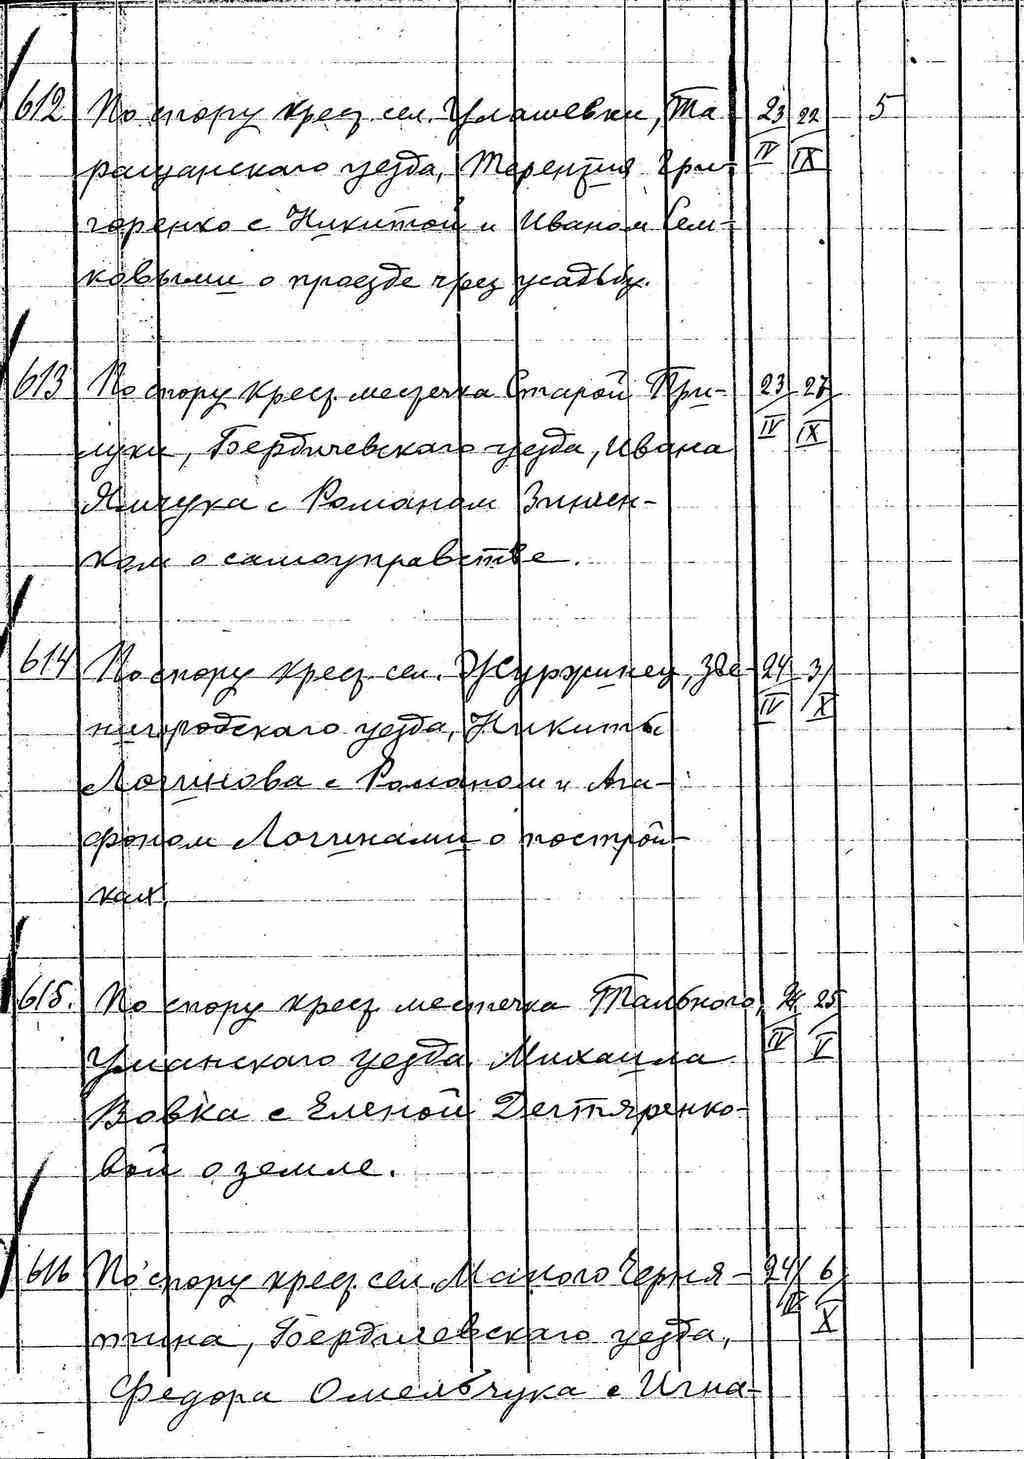 612 По спору крест. сел. Улашевки, Та- 23/IV 22/IX 5
ращанскаго уезда, Терентия Гри-
горенко с Никитой и Иваном Сем-
ковыми о проезде чрез усадьбу.
613 По спору крест. местечка Старой При- 23/IV 27/IX
луки, Бердичевскаго уезда, Ивана
с Романом Зинчен-
ком о самоуправстве.
614 По спору крест. сел. Журжинец, Зве- 24/IV 3/X
нигородскаго уезда, Никиты
Логинова с Романом и Ага-
фоном Логинами о построй-
ках.
615. По спору крест. местечка Тального, 24/IV 25/V
Уманскаго уезда, Михаила
Вовка с Еленой Дегтяренко-
вой о земле.
616 По спору крест. сел. Малого Черня- 24/IV 6/X
тина, Бердичевскаго уезда,
Федора Омельчука с Игна-